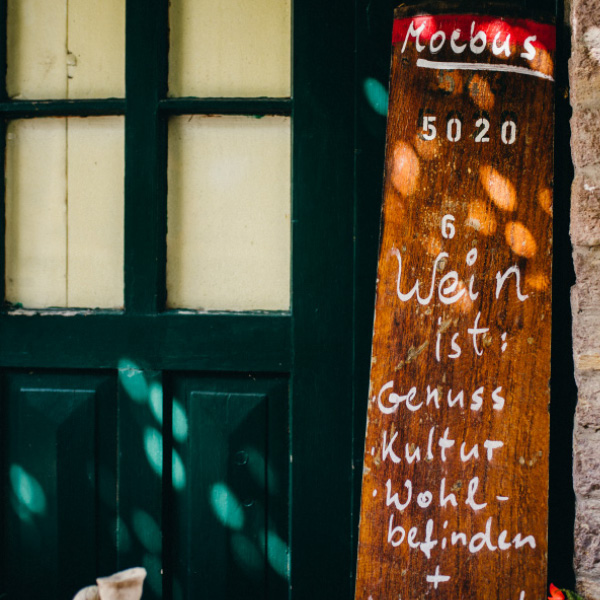 Moebus
5020
6
Wein
ist:
· Genuss
· Kultur
· Wohl-
befinden
+